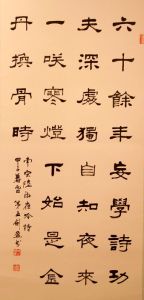 六十餘年妄學詩功
夫深處獨自知夜來
一咲寒燈下始是金
丹換骨時
南宋陸吟詩